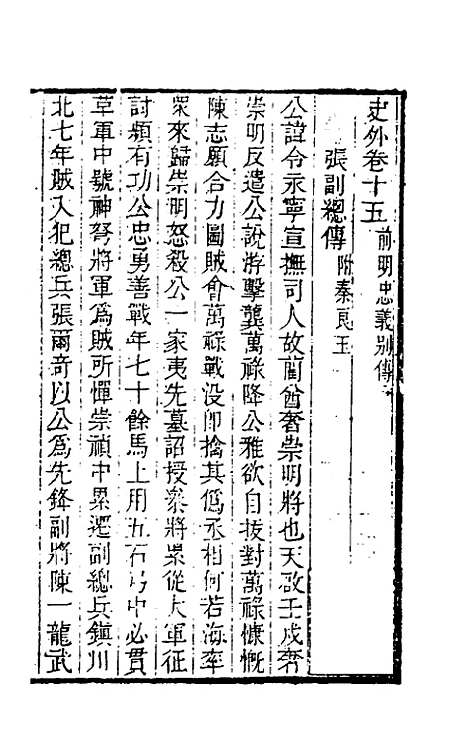 史外卷十五 前明忠義別傳
張副總傳 附秦良玉
公諱令永寧宣撫司人故藺酋奢崇明將也天啟壬戌奢
崇明反遣公說游擊龔萬祿降公雅欲自拔對萬祿慷慨
陳志願合力圖賊會萬祿戰没卽擒其僞丞相何若海率
衆來歸崇明怒殺公一家夷先墓詔授參將累從大軍征
討頗有功公忠勇善戰年七十餘馬上用五石弓中必貫
革軍中號神弩將軍爲賊所憚崇禎中累遷副總兵鎮川
北七年賊入犯總兵張爾奇以公爲先鋒副將陳一龍武